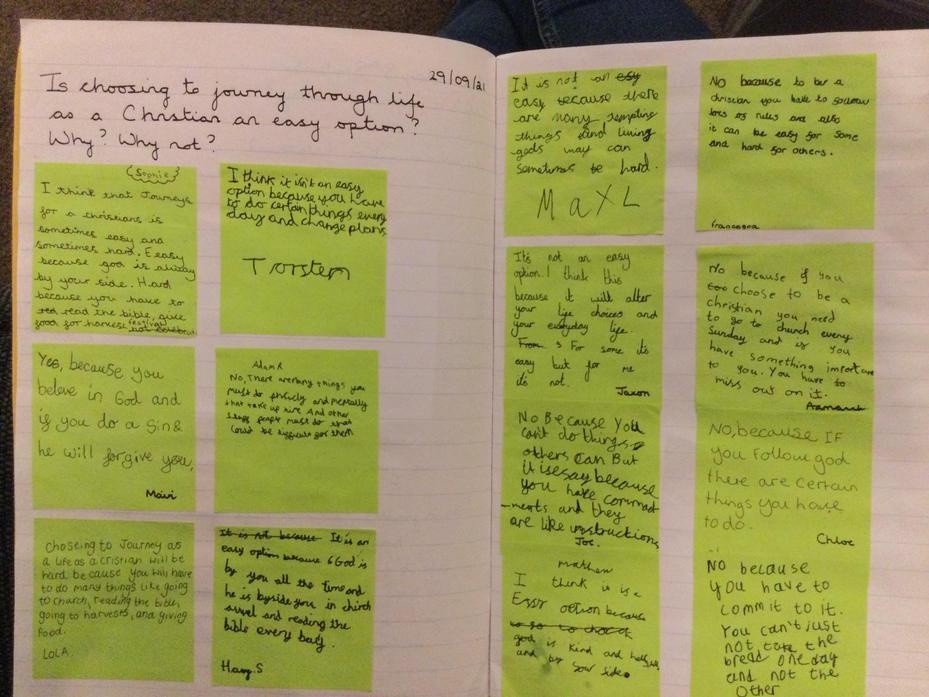 29/09/21
Is choosing to journey through life
as a Christian an easy option?
Why? Why not?
Sophie
I think that Journeys
for a christians is
sometimes easy and
sometimes hard. Eeasy
because god is alway
by your side. Hard
because you have to
read the bible, give
food for harvest festival
I think it isn't an easy
option because you have
to do certain things every
day and change plans
Torsten
Yes, because you
believe in God and
if you do a Sin
he will forgive you,
Adam R
No, There are many things you
must do phsicly and mentally
that take up time. And other
people must do that
could be difficult for them
Choseing to Journey as
a life as a cristian will be
hard because you will have
to do many things like going
to church, reading the bible,
going to harvests, and giving
food.
LOLA
It is not because It is an
easy option because God is
by you all the time and
he is byside you in chirch
and reading the
bible every day.
Harry.S
It is not an easy
easy because there
are many tempting
things and living
gods way can
sometimes be hard.
Max L
No because to be a
christian you have to follow
lots of rules and also
it can be easy for some
and hard for others.
francesca
It's not an easy
option. I think this
because it will alter
your life choices and
your everyday life.
For some it's
easy but for me
it's not.
Jaxon
No because if you
choose to be a
christian you need
to go to church every
Sunday and if you
have something important
to you. You have to
miss out on it.
No Because You
can't do things
others can But
it is esay because
you have command
ments and they
are like instructions
Joe.
No, because IF
you follow god
there are certain
things you have
to do.
Chloe
I think it is a
option because
god is kind and
and by your side.
No because
you have to
commit to it.
You can't just
not take the
bread one day
and not the
other